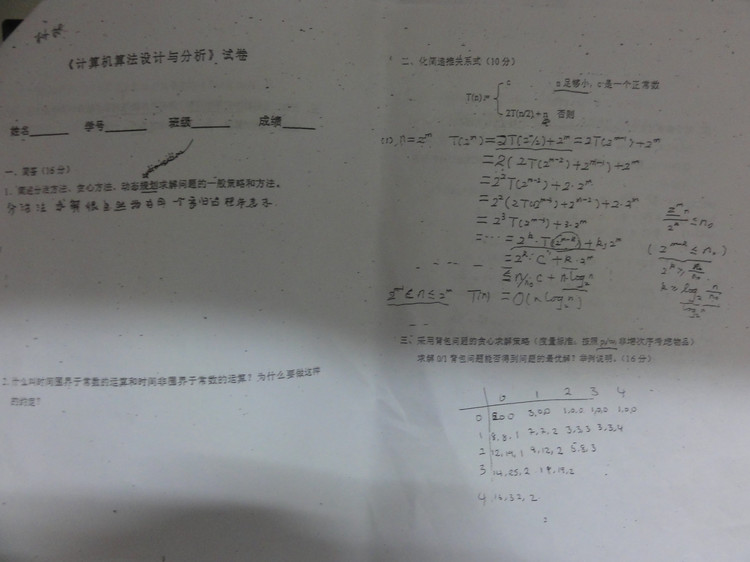 《计算机算法设计与分析》试卷
姓名 学号 班级 成绩
一、简答(16分)
1、简述分治方法、贪心方法、动态规划求解问题的一般策略和方法。
2、什么叫时间囿界于常数的运算和时间非囿界于常数的运算?为什么要做这样
的约定?
二、化简递推关系式(10分)
c n足够小,c是一个正常数
T(n)=
2T(n/2)+n 否则
(1), n=2^m T(2^m)=2T(2^m/2)+2^m=2T(2^{m-1})+2^m
=2(2T(2^{m-2})+2^{m-1})+2^m
=2²T(2^{m-2})+2·2^m
=2²(2T(2^{m-3})+2^{m-2})+2·2^m
=2³T(2^{m-3})+3·2^m
=…=2^k·T(2^{m-k})+k·2^m
=2^k·C+k·2^m
T(n)=O(n log₂n)
三、采用背包问题的贪心求解策略(度量标准:按照p/w非增次序考虑物品)
求解0/1背包问题能否得到问题的最优解?举例说明。(16分)
0 1 2 3 4
0 2,0,0 3,0,0 1,0,0 1,0,0 1,0,0
1 8,8,1 7,7,2 3,3,3 3,3,4
2 12,19,1 9,12,2 5,8,3
3 14,25,2 19,19,2
4 16,32,2